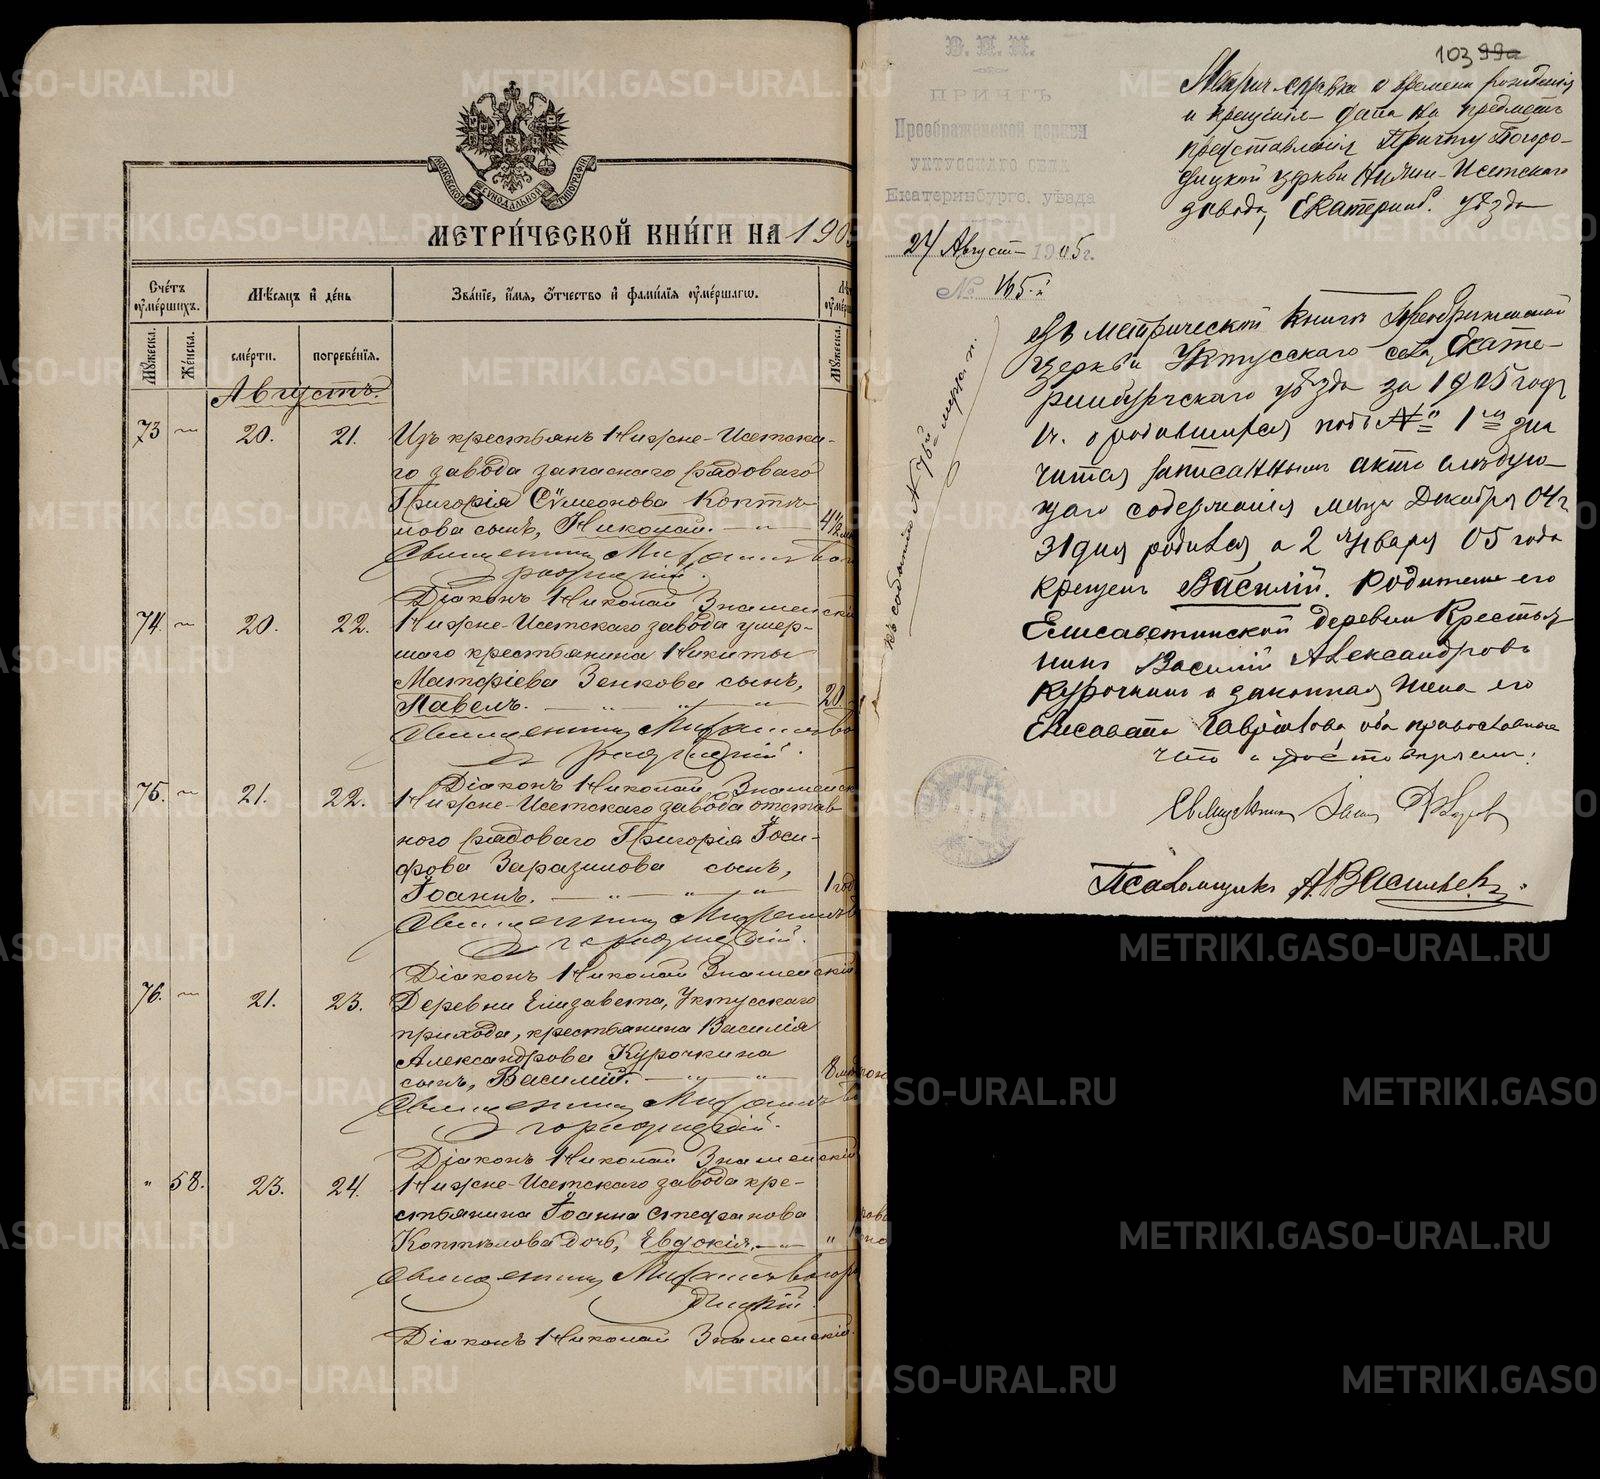 МОСКОВСКОЙ СѴНОДАЛЬНОЙ ТИПОГРАФІИ
МЕТРИЧЕСКОЙ КНИГИ НА 190
Счетъ умершихъ.
Мѣсяцъ и день
Званіе, имя, отчество и фамилія умершаго.
Мужеска.
Женска.
смерти.
погребенія.
Мужеска.
Августъ.
73 20. 21. Изъ крестьянъ Нижне-Исетска-
го завода запаснаго рядоваго
Григорія Сѵмеонова Коптѣ-
лова сынъ, Николай.
Священникъ Михаилъ Бого
родицкій.
Діаконъ Николай Знаменскій
74. 20. 22. Нижне-Исетскаго завода умер-
шаго крестьянина Никиты
Матфіева Зенкова сынъ,
Павелъ. 20
Священникъ Михаилъ Бо
городицкій.
Діаконъ Николай Знаменск
75. 21. 22. Нижне-Исетскаго завода отстав
ного рядоваго Григорія Іоси-
фова Заразилова сынъ,
Іоаннъ. 1 год
Священникъ Михаилъ Б
городицкій.
Діаконъ Николай Знаменскій
76. 21. 23. Деревни Елизавета, Уктусскаго
прихода, крестьянина Василія
Александрова Курочкина
сынъ, Василій. 8 м
Священникъ Михаилъ Бо
городицкій.
Діаконъ Николай Знаменскій
" 58. 23. 24. Нижне-Исетскаго завода кре-
стьянина Іоанна Стефанова
Коптѣлова дочь, Евдокія. "
Священникъ Михаилъ Богоро
дицкій.
Діаконъ Николай Знаменскій.
103 99а
В. П. И.
ПРИЧТЪ
Преображенской церкви
УКТУССКАГО СЕЛА
Екатеринбургс. уѣзда
24 Август 1905г.
№ 165-й
Метрич. справка о времени рожденія
и крещенія дана на предметъ
представленія Причту Богоро-
дицкой церкви Нижне-Исетскаго
завода, Екатеринб. уѣзда
Въ метрической книгѣ Преображенской
церкви Уктусскаго села, Екате-
ринбургскаго уѣзда за 1905 годъ
въ ч. о родившихся подъ № 1 зна
чится записаннымъ актъ слѣдую-
щаго содержанія: мца Декабря 04 г
31 дня родился а 2 Января 05 года
крещенъ Василій. Родители его
Елисаветинской деревни Крестья-
нинъ Василій Александровъ
Курочкинъ и законная жена его
Елисавета Гаврилова, оба православные
что и удостовѣряемъ:
Священникъ
Псаломщикъ А. Васильевъ.
къ событію № 76й мужс. п.
METRIKI.GASO-URAL.RU